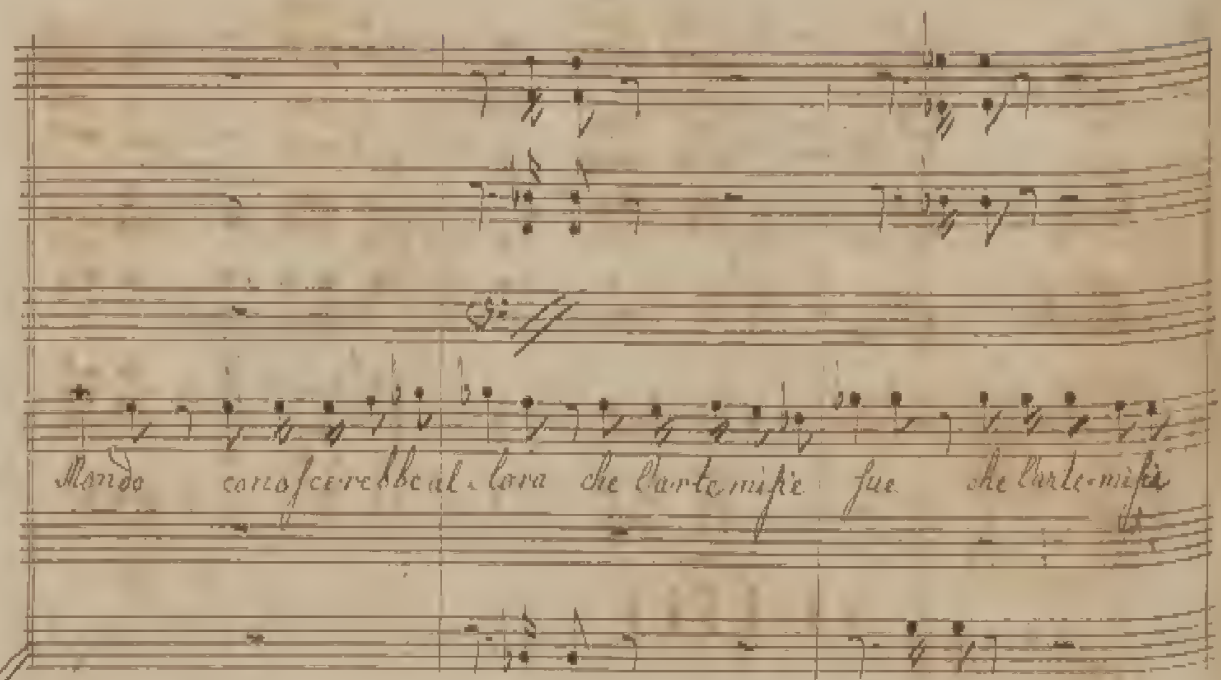 Mondo conoscerebbe al-lora che l'artemisie fue che l'arte-misie